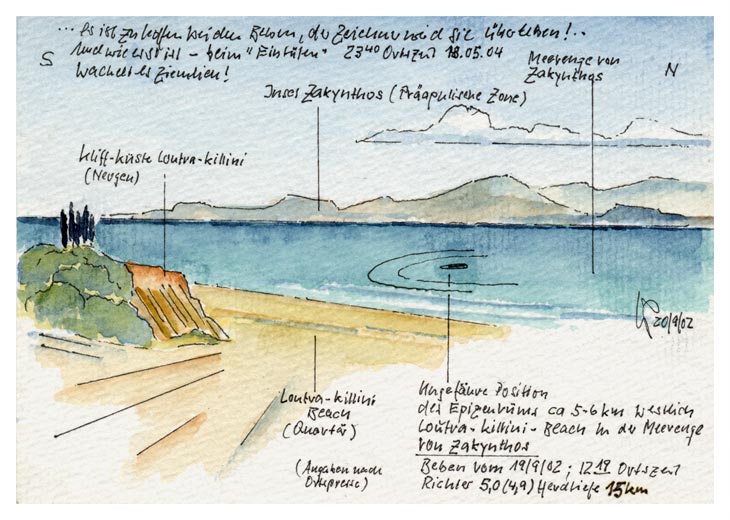 ... es ist zu hoffen bei den Beben, der Zeichner wird sie überleben!..
Und wie erst ist - beim "Eintüten" 23⁴⁰ Ortszeit 18.05.04
wackelt es ziemlich!
S
N
Meerenge von
Zakynthos
Insel Zakynthos (Präapulische Zone)
Kliff-küste Loutra-killini
(Neogen)
20/9/02
Loutra-killini
Beach
(Quartär)
(Angaben nach
Ortspresse)
Ungefähre Position
des Epizentrums ca 5-6 km westlich
Loutra-killini-Beach in der Meerenge
von Zakynthos
Beben vom 19/9/02; 12¹⁹ Ortszeit
Richter 5,0 (4,9) Herdtiefe 15km